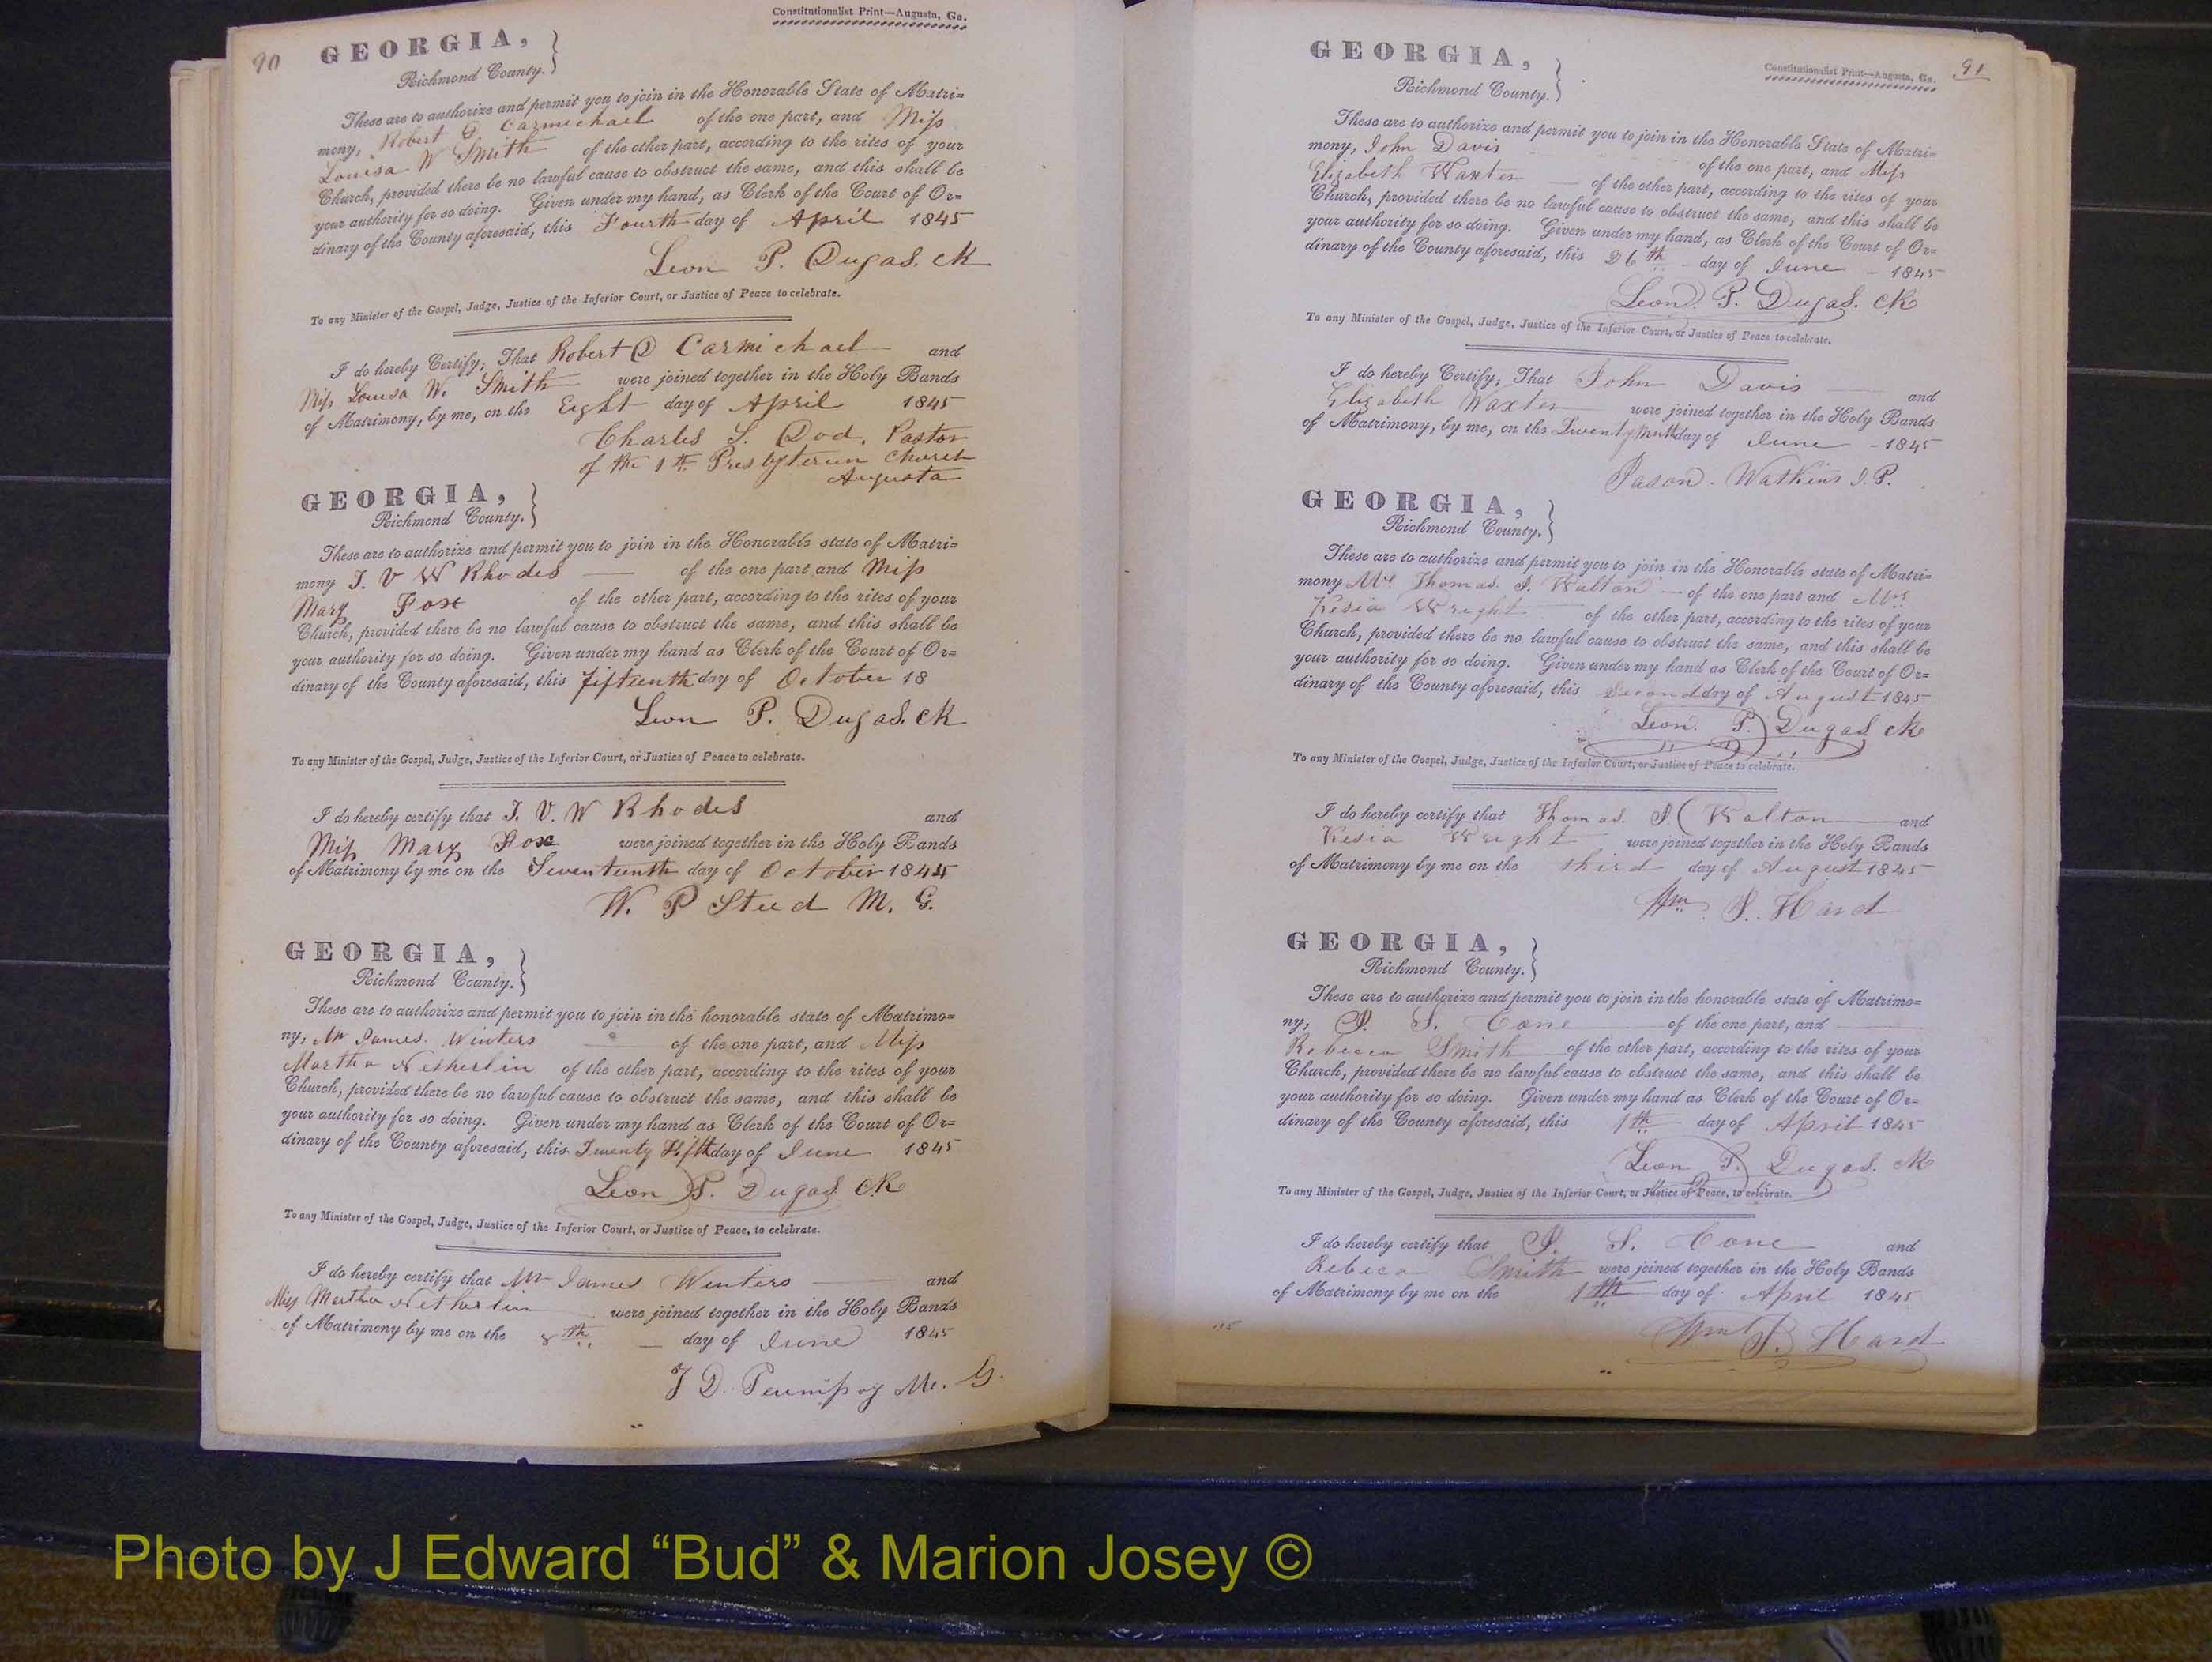 90
Constitutionalist Print—Augusta, Ga.
GEORGIA,
Richmond County.
These are to authorize and permit you to join in the Honorable State of Matri=
mony, Robert D Carmichael of the one part, and Miss
Louisa W Smith of the other part, according to the rites of your
Church, provided there be no lawful cause to obstruct the same, and this shall be
your authority for so doing. Given under my hand, as Clerk of the Court of Or=
dinary of the County aforesaid, this Fourth day of April 1845
Leon P. Dugas. Ck
To any Minister of the Gospel, Judge, Justice of the Inferior Court, or Justice of Peace to celebrate.
I do hereby Certify, That Robert D Carmichael and
Miss Louisa W. Smith were joined together in the Holy Bands
of Matrimony, by me, on the Eight day of April 1845
Charles S. Dod. Pastor
of the 1th Presbyterian Church
Augusta
GEORGIA,
Richmond County.
These are to authorize and permit you to join in the Honorable state of Matri=
mony J. V W Rhodes of the one part and Miss
Mary Fox of the other part, according to the rites of your
Church, provided there be no lawful cause to obstruct the same, and this shall be
your authority for so doing. Given under my hand as Clerk of the Court of Or=
dinary of the County aforesaid, this fifteenth day of October 18
Leon P. Dugas. Ck
To any Minister of the Gospel, Judge, Justice of the Inferior Court, or Justice of Peace to celebrate.
I do hereby certify that J. V. W Rhodes and
Miss Mary Fox were joined together in the Holy Bands
of Matrimony by me on the Seventeenth day of October 1844
W. P Steed M. G.
GEORGIA,
Richmond County.
These are to authorize and permit you to join in the honorable state of Matrimo=
ny, Mr James. Winters of the one part, and Miss
Martha Netherlin of the other part, according to the rites of your
Church, provided there be no lawful cause to obstruct the same, and this shall be
your authority for so doing. Given under my hand as Clerk of the Court of Or=
dinary of the County aforesaid, this Twenty Fifth day of June 1845
Leon P. Dugas Ck
To any Minister of the Gospel, Judge, Justice of the Inferior Court, or Justice of Peace, to celebrate.
I do hereby certify that Mr James Winters and
Miss Martha Netherlin were joined together in the Holy Bands
of Matrimony by me on the 8th day of June 1845
D. M. G.
91
Constitutionalist Print—Augusta, Ga.
GEORGIA,
Richmond County.
These are to authorize and permit you to join in the Honorable State of Matri=
mony, John Davis of the one part, and Miss
Elizabeth Waxter of the other part, according to the rites of your
Church, provided there be no lawful cause to obstruct the same, and this shall be
your authority for so doing. Given under my hand, as Clerk of the Court of Or=
dinary of the County aforesaid, this 26th day of June 1845
Leon P. Dugas. Ck
To any Minister of the Gospel, Judge, Justice of the Inferior Court, or Justice of Peace to celebrate.
I do hereby Certify, That John Davis and
Elizabeth Waxter were joined together in the Holy Bands
of Matrimony, by me, on the Twenty day of June 1845
Jason. Watkins J. P.
GEORGIA,
Richmond County.
These are to authorize and permit you to join in the Honorable state of Matri=
mony Mr Thomas. J. Walton of the one part and Mrs
Kesia Wright of the other part, according to the rites of your
Church, provided there be no lawful cause to obstruct the same, and this shall be
your authority for so doing. Given under my hand as Clerk of the Court of Or=
dinary of the County aforesaid, this Second day of August 1845
Leon. P. Dugas Ck
To any Minister of the Gospel, Judge, Justice of the Inferior Court, or Justice of Peace to celebrate.
I do hereby certify that Thomas. J Walton and
Kesia Wright were joined together in the Holy Bands
of Matrimony by me on the third day of August 1845
Wm J. Hard
GEORGIA,
Richmond County.
These are to authorize and permit you to join in the honorable state of Matrimo=
ny, J. S. Cone of the one part, and
Rebecca Smith of the other part, according to the rites of your
Church, provided there be no lawful cause to obstruct the same, and this shall be
your authority for so doing. Given under my hand as Clerk of the Court of Or=
dinary of the County aforesaid, this 1th day of April 1845
Leon P. Dugas. Ck
To any Minister of the Gospel, Judge, Justice of the Inferior Court, or Justice of Peace, to celebrate.
I do hereby certify that J. S. Cone and
Rebeca Smith were joined together in the Holy Bands
of Matrimony by me on the 1th day of April 1845
Wm J. Hard
Photo by J Edward “Bud” & Marion Josey ©